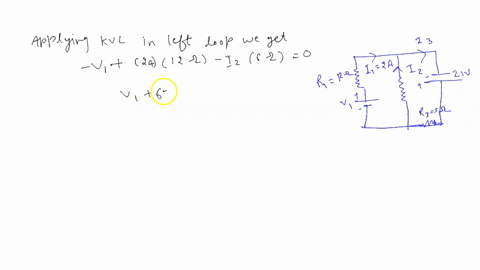 Applying KVL in left loop we get
-V1 + (2A)(12Ω) - I2 (6Ω) = 0
V1 + 6
I3
I1=2A
I2
R1=12Ω
V1
+
-
-
+
21V
R3=3Ω